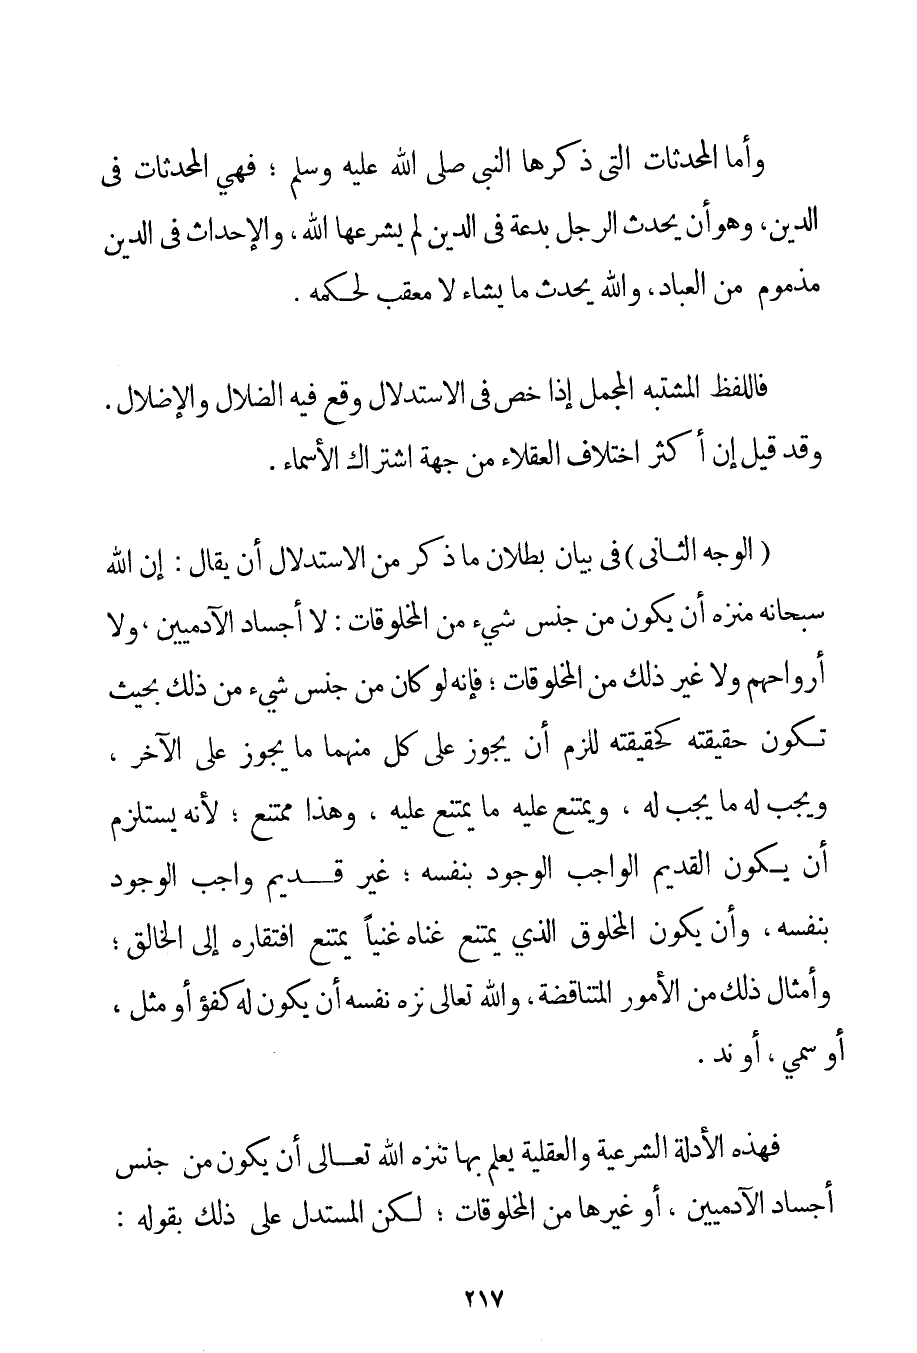 وأما المحدثات التى ذكرها النبى صلى الله عليه وسلم ؛ فهي المحدثات فى
الدين، وهو أن يحدث الرجل بدعة فى الدين لم يشرعها الله ، والإحداث فى الدين
مذموم من العباد، والله يحدث ما يشاء لا معقب لحكمه .
فاللفظ المشتبه المجمل إذا خص فى الاستدلال وقع فيه الضلال والإضلال .
وقد قيل إن أكثر اختلاف العقلاء من جهة اشتراك الأسماء .
( الوجه الثانى ) فى بيان بطلان ما ذكر من الاستدلال أن يقال : إن الله
سبحانه منزه أن يكون من جنس شيء من المخلوقات : لا أجساد الآدميين ، ولا
أرواحهم ولا غير ذلك من المخلوقات ؛ فإنه لو كان من جنس شيء من ذلك بحيث
تكون حقيقته كحقيقته للزم أن يجوز على كل منهما ما يجوز على الآخر ،
ويجب له ما يجب له ، ويمتنع عليه ما يمتنع عليه ، وهذا ممتنع ؛ لأنه يستلزم
أن يكون القديم الواجب الوجود بنفسه ؛ غير قديم واجب الوجود
بنفسه ، وأن يكون المخلوق الذي يمتنع غناه غنياً يمتنع افتقاره إلى الخالق ؛
وأمثال ذلك من الأمور المتناقضة ، والله تعالى نزه نفسه أن يكون له كفؤ أو مثل ،
أو سمي ، أو ند .
فهذه الأدلة الشرعية والعقلية يعلم بها تنزه الله تعالى أن يكون من جنس
أجساد الآدميين ، أو غيرها من المخلوقات ؛ لكن المستدل على ذلك بقوله :
٢١٧